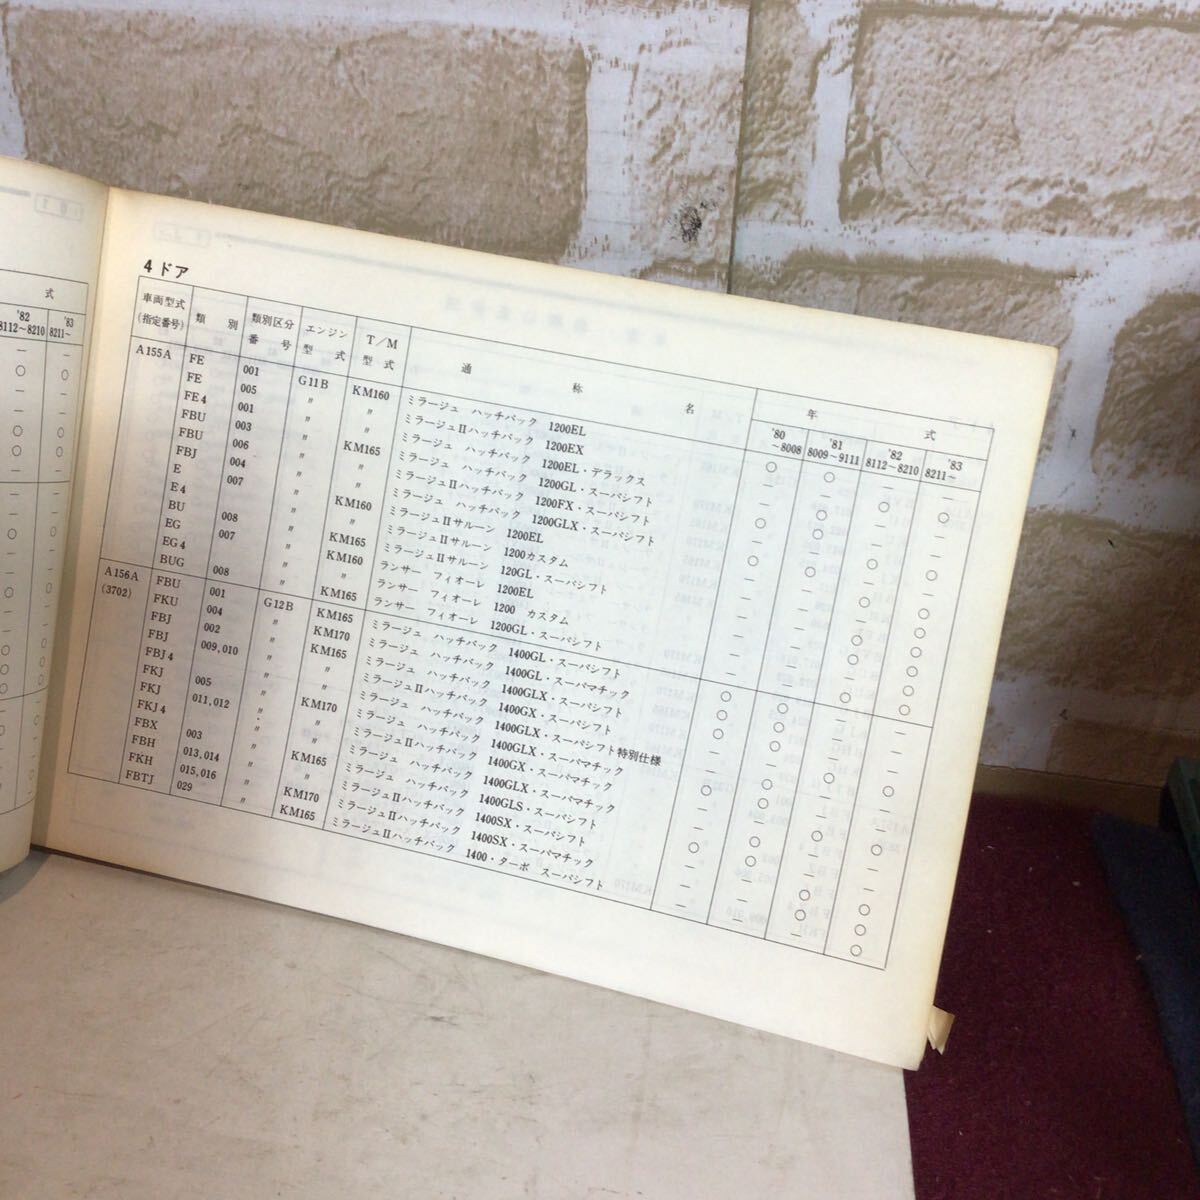 式
'82 '83
8112～8210 8211～
4ドア
車両型式 (指定番号) 類別 類別区分番号 エンジン型式 T／M型式 通称名 年式
'80 ～8008 '81 8009～9111 '82 8112～8210 '83 8211～
A155A FE 001 G11B KM160 ミラージュ ハッチバック 1200EL
FE 005 〃 〃 ミラージュIIハッチバック 1200EX
FE4 001 〃 〃 ミラージュ ハッチバック 1200EL・デラックス
FBU 003 〃 KM165 ミラージュ ハッチバック 1200GL・スーパシフト
FBU 006 〃 〃 ミラージュIIハッチバック 1200FX・スーパシフト
FBJ 004 〃 〃 ミラージュ ハッチバック 1200GLX・スーパシフト
E 007 〃 KM160 ミラージュIIサルーン 1200EL
E4 〃 〃 ミラージュIIサルーン 1200カスタム
BU 008 〃 KM165 ミラージュIIサルーン 120GL・スーパシフト
EG 007 〃 KM160 ランサー フィオーレ 1200EL
EG4 〃 〃 ランサー フィオーレ 1200 カスタム
BUG 008 〃 KM165 ランサー フィオーレ 1200GL・スーパシフト
A156A (3702) FBU 001 G12B KM165 ミラージュ ハッチバック 1400GL・スーパシフト
FKU 004 〃 KM170 ミラージュ ハッチバック 1400GL・スーパマチック
FBJ 002 〃 KM165 ミラージュ ハッチバック 1400GLX・スーパシフト
FBJ 009,010 〃 〃 ミラージュIIハッチバック 1400GX・スーパシフト
FBJ4 〃 〃 ミラージュ ハッチバック 1400GLX・スーパシフト特別仕様
FKJ 005 〃 KM170 ミラージュ ハッチバック 1400GLX・スーパマチック
FKJ 011,012 〃 〃 ミラージュIIハッチバック 1400GX・スーパマチック
FKJ4 〃 〃 ミラージュ ハッチバック 1400GLX・スーパマチック
FBX 003 〃 KM165 ミラージュ ハッチバック 1400GLS・スーパシフト
FBH 013,014 〃 〃 ミラージュIIハッチバック 1400SX・スーパシフト
FKH 015,016 〃 KM170 ミラージュIIハッチバック 1400SX・スーパマチック
FBTJ 029 〃 KM165 ミラージュIIハッチバック 1400・ターボ スーパシフト